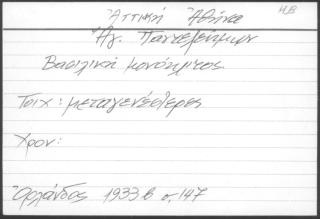 Η.Β
Ἀττική Ἀθήνα
Ἁγ. Παντελεήμων
Βασιλική μονόκλιτος
Τοιχ: μεταγενέστερες
Χρον:
Ὀρλάνδος 1933 β σ, 147